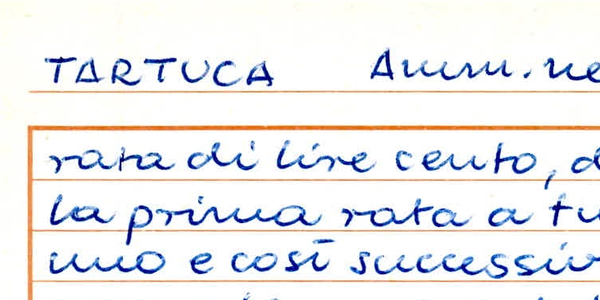 TARTUCA Amm.ne
rata di lire cento, d
la prima rata a tu
uno e così successiv